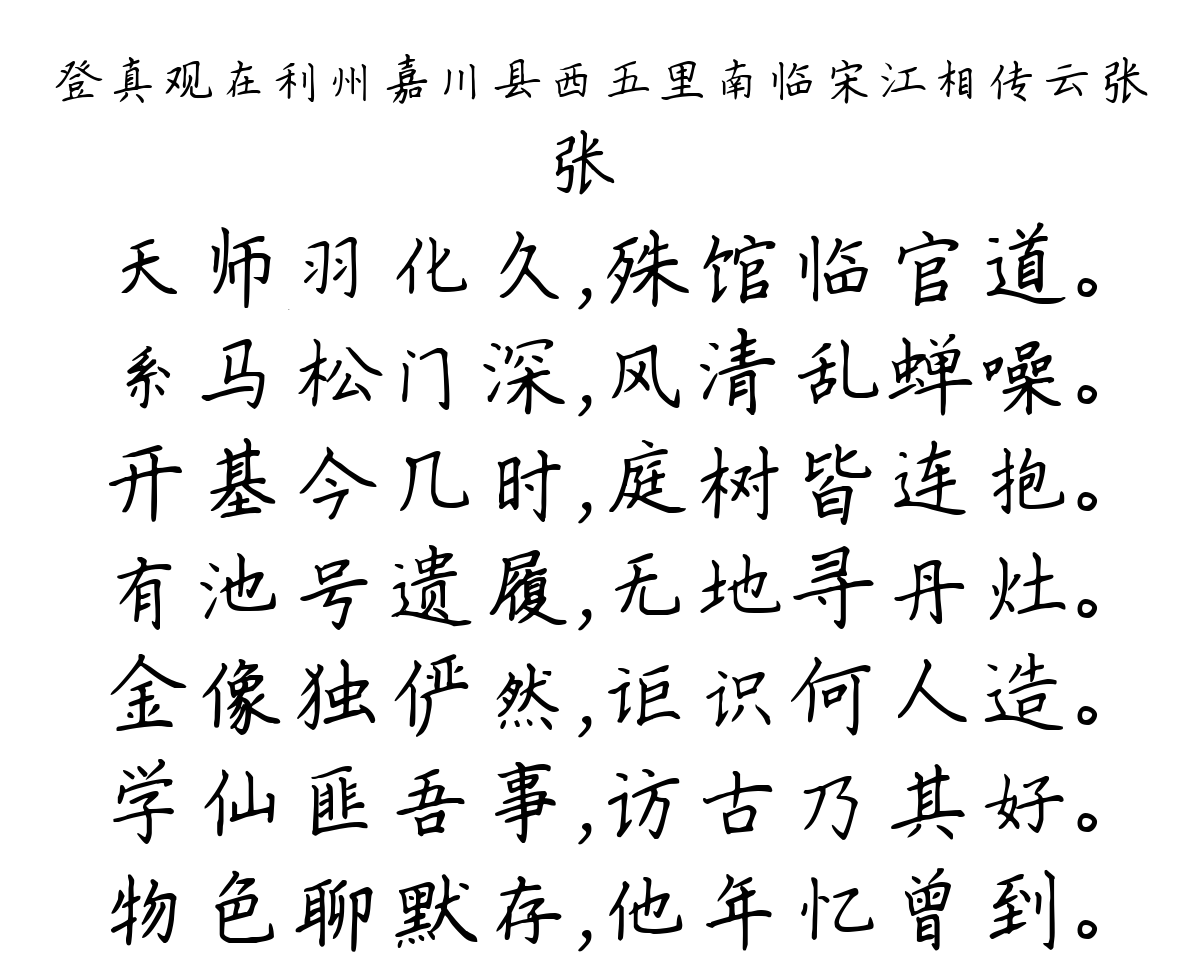 登真观在利州嘉川县西五里南临宋江相传云张
张
天师羽化久,殊馆临官道。
系马松门深,风清乱蝉噪。
开基今几时,庭树皆连抱。
有池号遗履,无地寻丹灶。
金像独俨然,讵识何人造。
学仙匪吾事,访古乃其好。
物色聊默存,他年忆曾到。